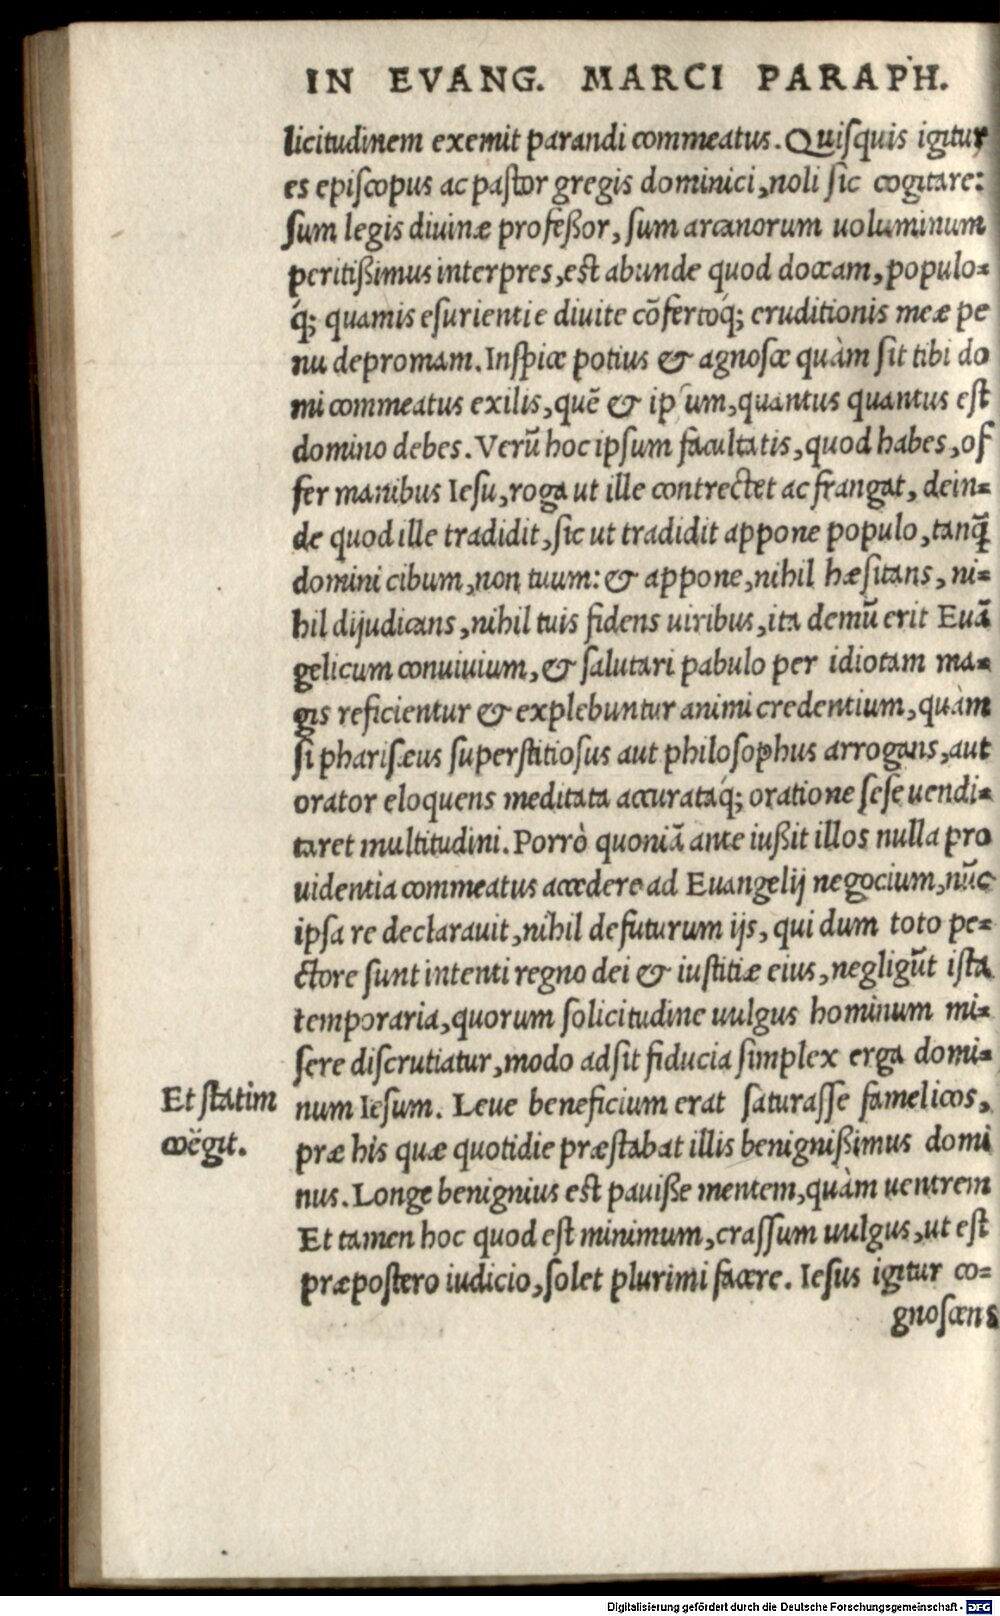 IN EVANG. MARCI PARAPH.
licitudinem exemit parandi commeatus. Quiſquis igitur
es epiſcopus ac paſtor gregis dominici, noli ſic cogitare:
ſum legis diuinæ profeßor, ſum arcanorum uoluminum
peritißimus interpres, eſt abunde quod doceam, populo-
q́; quamis eſurienti e diuite cõfertoq́; eruditionis meæ pe
nu depromam. Inſpice potius & agnoſce quàm ſit tibi do
mi commeatus exilis, quẽ & ipſum, quantus quantus eſt
domino debes. Verũ hoc ipſum facultatis, quod habes, of
fer manibus Ieſu, roga ut ille contrectet ac frangat, dein-
de quod ille tradidit, ſic ut tradidit appone populo, tanq̃
domini cibum, non tuum: & appone, nihil hæſitans, ni-
hil dijudicans, nihil tuis fidens uiribus, ita demũ erit Euã
gelicum conuiuium, & ſalutari pabulo per idiotam ma-
gis reficientur & explebuntur animi credentium, quàm
ſi phariſæus ſuperſtitioſus aut philoſophus arrogans, aut
orator eloquens meditata accurataq́; oratione ſeſe uendi-
taret multitudini. Porrò quoniã ante iußit illos nulla pro
uidentia commeatus accedere ad Euangelij negocium, nũc
ipſa re declarauit, nihil defuturum ijs, qui dum toto pe-
ctore ſunt intenti regno dei & iuſtitiæ eius, negligũt iſta
temporaria, quorum ſolicitudine uulgus hominum mi-
ſere diſcrutiatur, modo adſit fiducia ſimplex erga domi-
num Ieſum. Leue beneficium erat ſaturaſſe famelicos,
præ his quæ quotidie præſtabat illis benignißimus domi
nus. Longe benignius eſt pauiße mentem, quàm uentrem
Et tamen hoc quod eſt minimum, craſſum uulgus, ut eſt
præpoſtero iudicio, ſolet plurimi facere. Ieſus igitur co-
gnoſcens
Et ſtatim
coëgit.
Digitalisierung gefördert durch die Deutsche Forschungsgemeinschaft - DFG